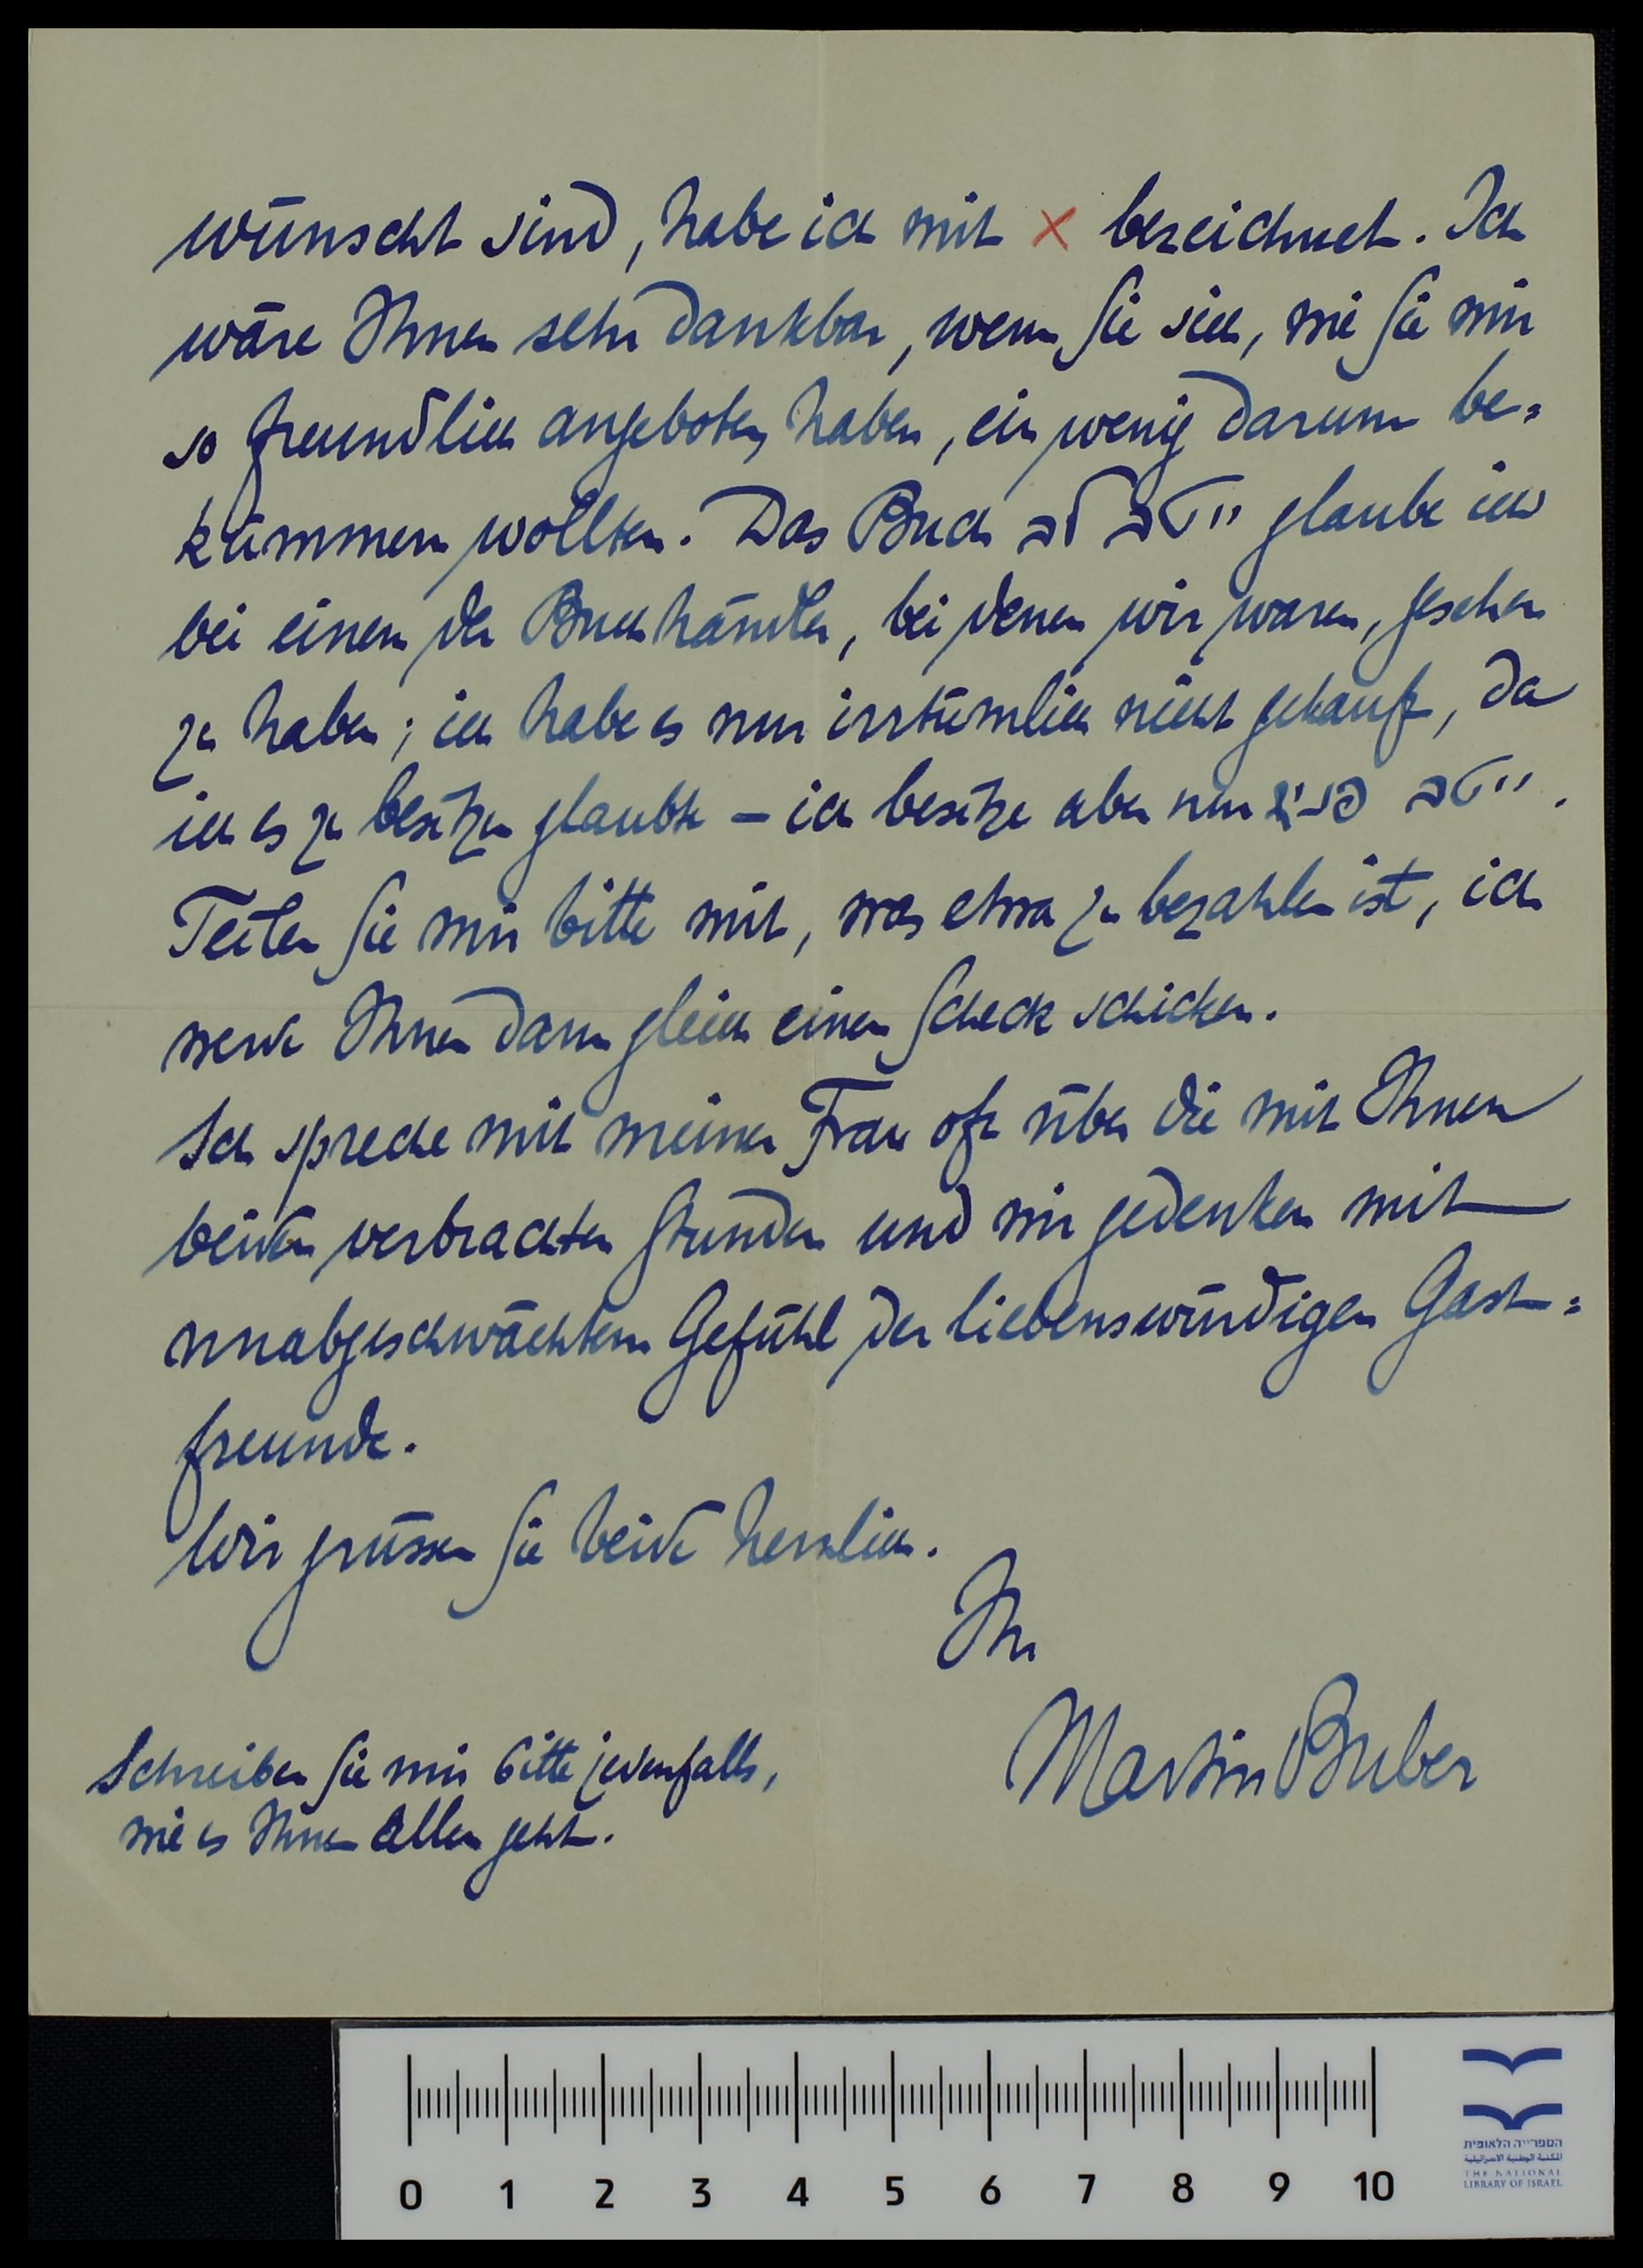 wünscht sind, habe ich mit × bezeichnet. Ich
wäre Ihnen sehr dankbar, wenn Sie sich, wie Sie mir
so freundlich angeboten haben, ein wenig darum be=
kümmern wollten. Das Buch glaube ich
bei einem der Buchhändler, bei denen wir waren, gesehen
zu haben; ich habe es nur irrtümlich nicht gekauft, da
ich es zu besitzen glaubte – ich besitze aber nur
Teilen Sie mir bitte mit, was etwa zu bezahlen ist, ich
werde Ihnen dann gleich einen Scheck schicken.
Ich spreche mit meiner Frau oft über die mit Ihnen
beiden verbrachten Stunden und wir gedenken mit
unabgeschwächtem Gefühl der liebenswürdigen Gast=
freunde.
Wir grüssen Sie beide herzlich.
Ihr
Martin Buber
Schreiben Sie mir bitte jedenfalls,
wie es Ihnen allen geht.
0 1 2 3 4 5 6 7 8 9 10
הספרייה הלאומית
المكتبة الوطنية الاسرائيلية
THE NATIONAL
LIBRARY OF ISRAEL